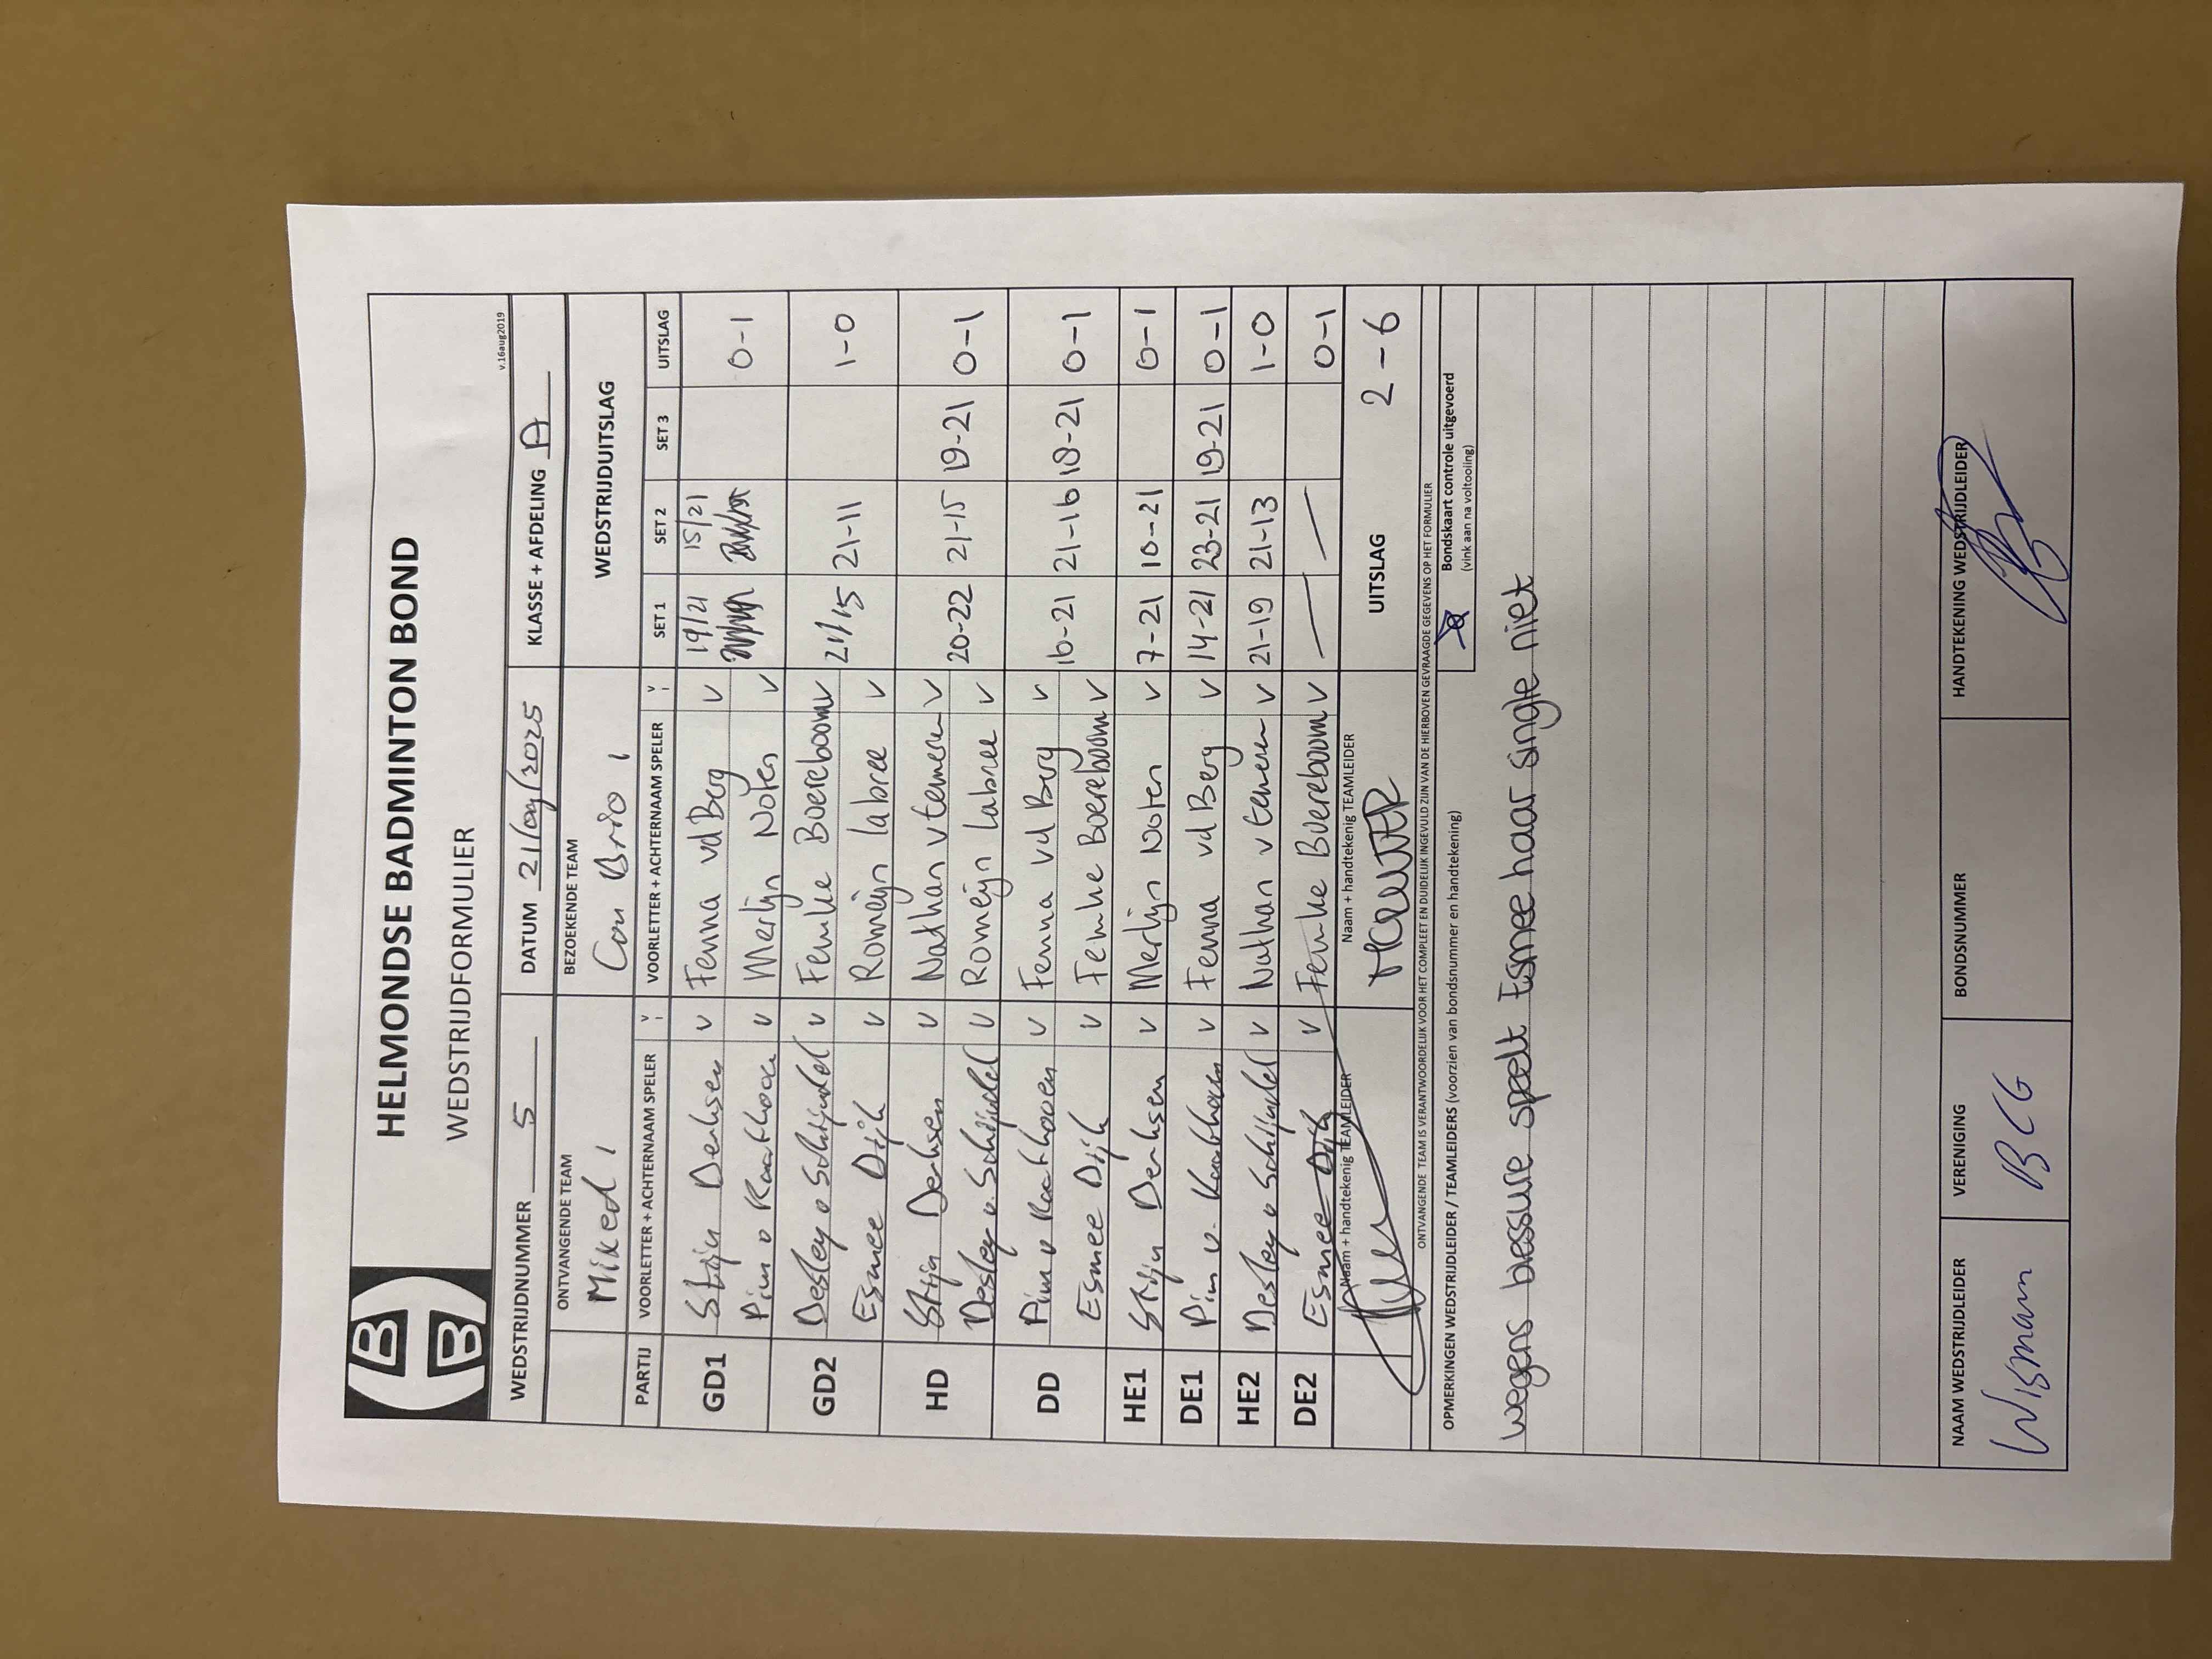 HELMONDSE BADMINTON BOND
WEDSTRIJDFORMULIER
v.16aug2019
WEDSTRIJDNUMMER 5 DATUM 21/09/2025 KLASSE + AFDELING A
ONTVANGENDE TEAM BEZOEKENDE TEAM WEDSTRIJDUITSLAG
Mixed 1 Con Brio 1
PARTIJ VOORLETTER + ACHTERNAAM SPELER V VOORLETTER + ACHTERNAAM SPELER V SET 1 SET 2 SET 3 UITSLAG
GD1 Stijn Derksen v Fenna vd Berg v 19/21 15/21 0-1
Pim v Kaathoven v Merlijn Noten v
GD2 Desley v Schijndel v Femke Boereboom v 21/15 21-11 1-0
Esmee Dijk v Romeijn Labree v
HD Stijn Derksen v Nathan v Temeren v 20-22 21-15 19-21 0-1
Desley v. Schijndel v Romeijn Labree v
DD Pim v Kaathoven v Fenna vd Berg v 16-21 21-16 18-21 0-1
Esmee Dijk v Femke Boereboom v
HE1 Stijn Derksen v Merlijn Noten v 7-21 10-21 0-1
DE1 Pim v. Kaathoven v Fenna vd Berg v 14-21 23-21 19-21 0-1
HE2 Desley v Schijndel v Nathan v Temeren v 21-19 21-13 1-0
DE2 Esmee Dijk v Femke Boereboom v — — 0-1
Naam + handtekenig TEAMLEIDER Naam + handtekenig TEAMLEIDER UITSLAG 2-6
ONTVANGENDE TEAM IS VERANTWOORDELIJK VOOR HET COMPLEET EN DUIDELIJK INGEVULD ZIJN VAN DE HIERBOVEN GEVRAAGDE GEGEVENS OP HET FORMULIER
OPMERKINGEN WEDSTRIJDLEIDER / TEAMLEIDERS (voorzien van bondsnummer en handtekening)
Bondskaart controle uitgevoerd
(vink aan na voltooiing)
wegens blessure speelt Esmee haar single niet
NAAM WEDSTRIJDLEIDER VERENIGING BONDSNUMMER HANDTEKENING WEDSTRIJDLEIDER
Wisman BCG